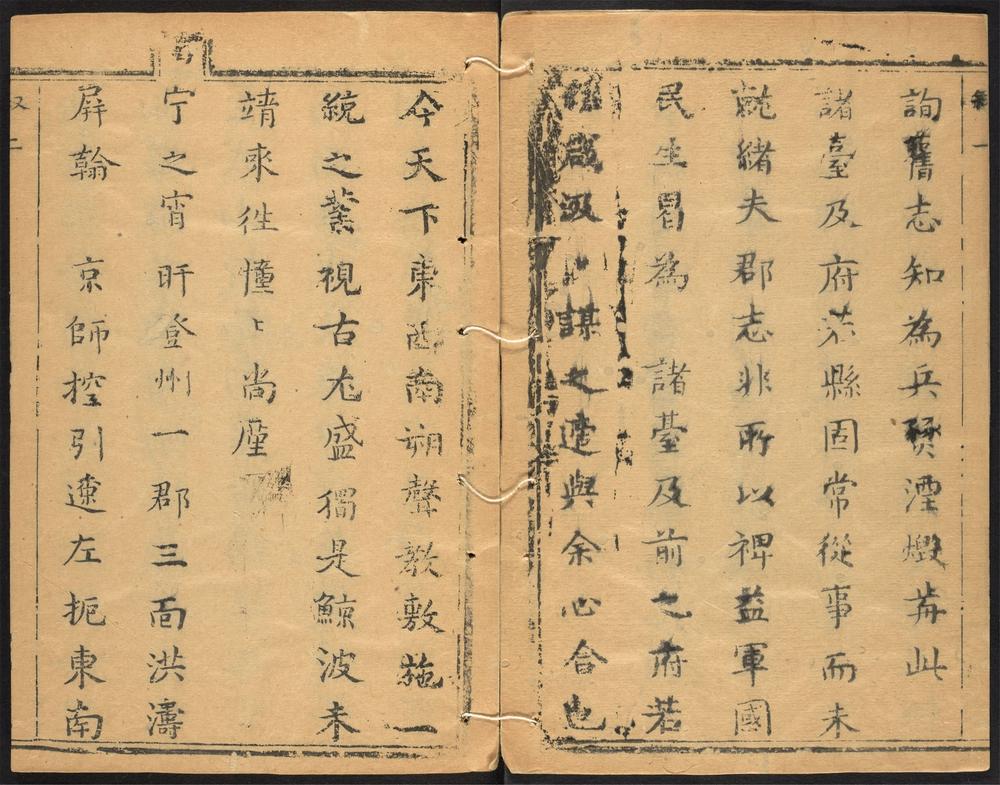 詢舊志知為兵燹湮燬苐此
諸臺及府若縣固常從事而未
就緒夫郡志非所以裨益軍國
民生曷為 諸臺及前之府若
縣咸汲汲謀之遽與余心合也
今天下東西南朔聲教敷施一
統之業視古尤盛獨是鯨波未
靖來徃憧〻尚廑
宁之宵旰登州一郡三面洪濤
屏翰 京師控引遼左扼東南